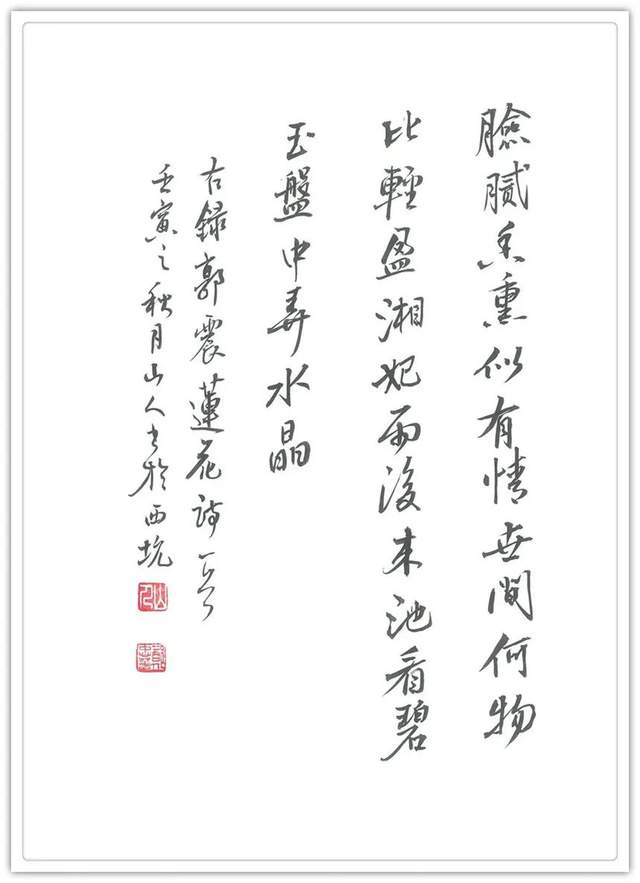 臉膩香熏似有情世間何物
比輕盈湘妃雨後来池看碧
玉盤中弄水晶
右録郭震蓮花詩一首
壬寅之秋月山人書於西坑
山人